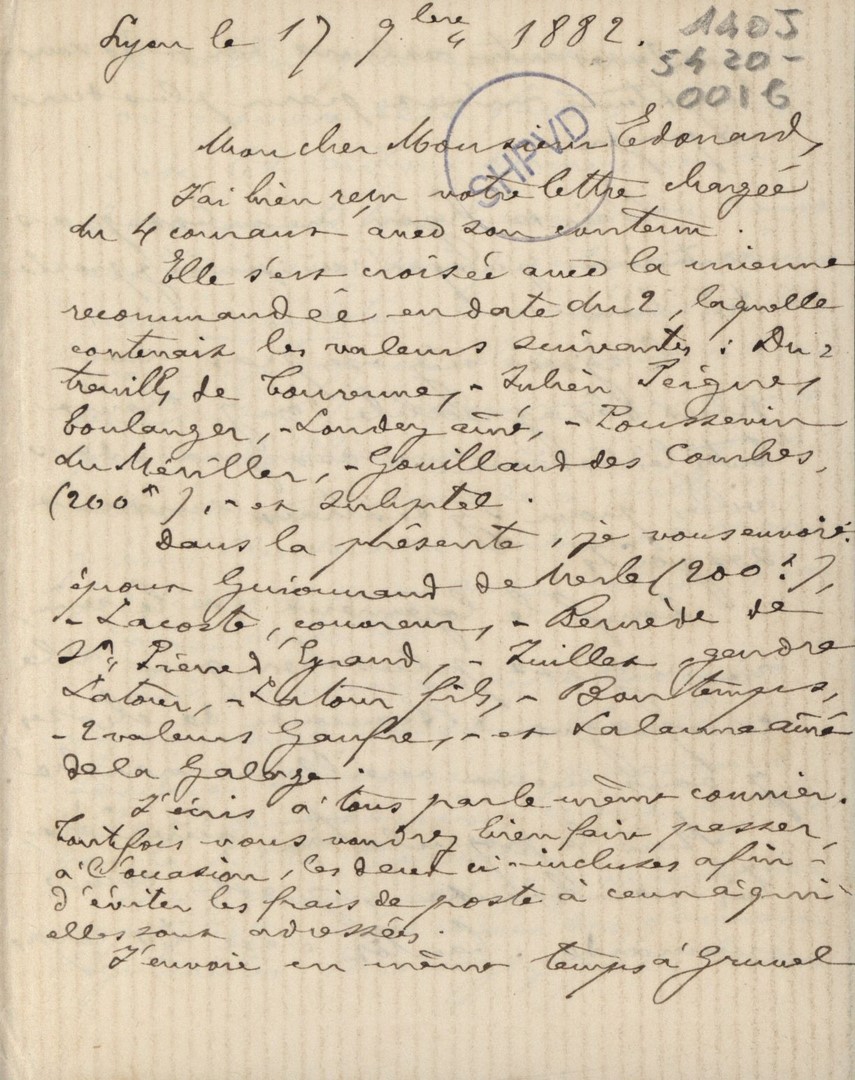 Lyon le 17 9bre 1882.
140J
5420-
0016
SHPVD
Mon cher Monsieur Edouard,
J'ai bien reçu votre lettre chargée
du 4 courant avec son contenu.
Elle s'est croisée avec la mienne
recommandée en date du 2, laquelle
contenait les valeurs suivantes : Du=
treuilh de Tourenne, - Julien Peigne,
boulanger, - Londey aîné, - Poussevin
du Mériller, - Gouilland des Combes,
(200f), - et
Dans la présente, je vous envoie:
de Merle (200f),
- Lacoste, couvreur, - Bernède de
St Pierre d'Eyraud, - Juillet gendre
Latour, - Latour fils, - Bontemps,
- 2 valeurs Gaufre, - et Lalanne aîné
de la Galage.
J'écris à tous par le même courrier.
Toutefois vous voudrez bien faire passer,
à l'occasion, les deux ci-incluses afin
d'éviter les frais de poste à ceux à qui
elles sont adressées.
J'envoie en même temps à Gruvel